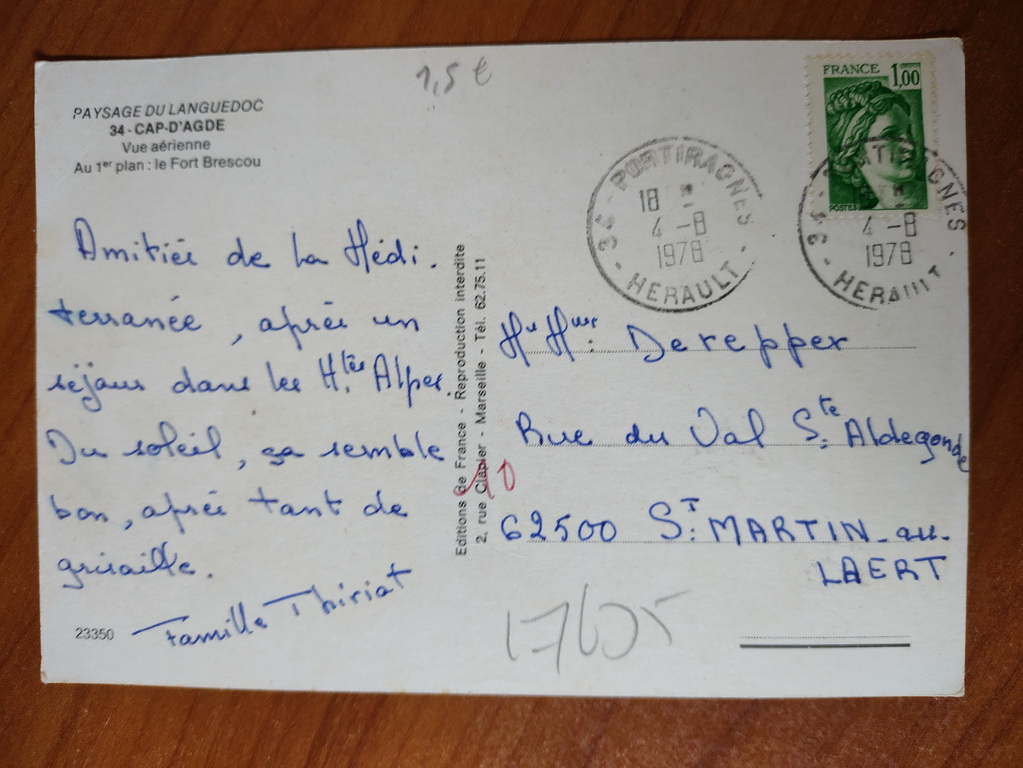 1,5 €
PAYSAGE DU LANGUEDOC
34 - CAP-D'AGDE
Vue aérienne
Au 1er plan : le Fort Brescou
FRANCE 1,00
POSTES
34 - PORTIRAGNES
18 H
4 - 8
1978
- HERAULT -
34 - PORTIRAGNES
4 - 8
1978
- HERAULT -
Amitiés de la Médi.
terranée, après un
séjour dans les Htes Alpes.
Du soleil, ça semble
bon, après tant de
grisaille.
Famille Thiriat
23350
Editions de France - Reproduction interdite
2, rue Clapier - Marseille - Tél. 62.75.11
Mr Mme. Derepper
Rue du Val Ste Aldegonde
62500 St. MARTIN-au-
LAERT
17605